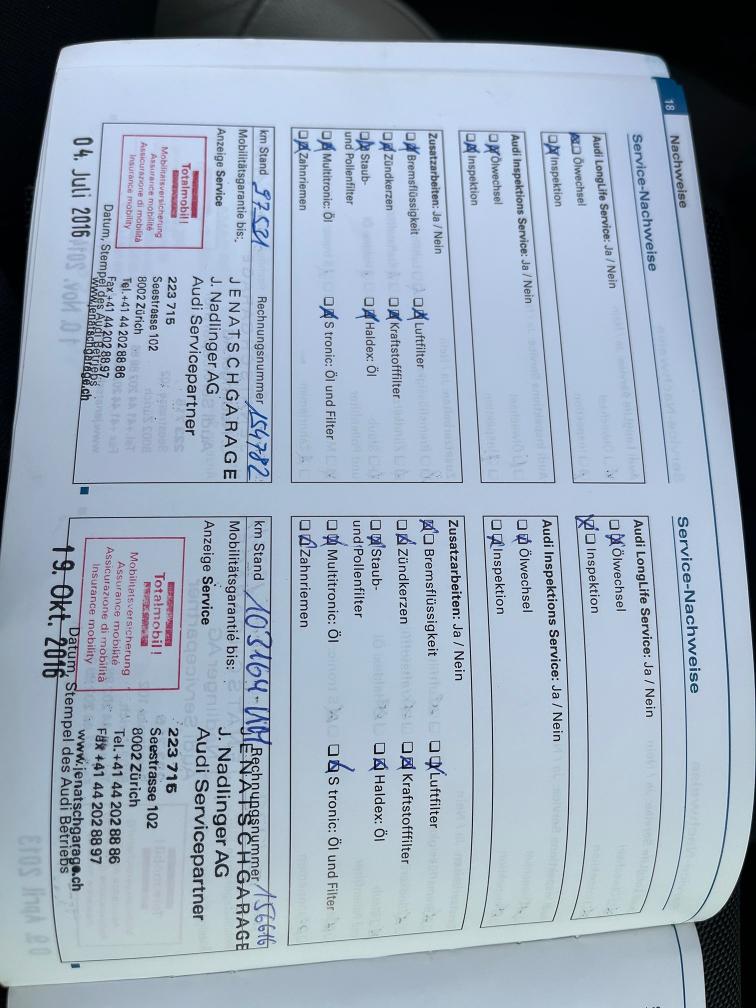 18 Nachweise
Service-Nachweise
Audi LongLife Service: Ja / Nein
Ölwechsel
Inspektion
Audi Inspektions Service: Ja / Nein
Ölwechsel
Inspektion
Zusatzarbeiten: Ja / Nein
Bremsflüssigkeit
Luftfilter
Zündkerzen
Kraftstofffilter
Staub-
und Pollenfilter
Haldex: Öl
Multitronic: Öl
S tronic: Öl und Filter
Zahnriemen
km Stand 97521 Rechnungsnummer 154782
Mobilitätsgarantie bis:
Anzeige Service
JENATSCHGARAGE
J. Nadlinger AG
Audi Servicepartner
Totalmobil!
Mobilitätsversicherung
Assurance mobilité
Assicurazione di mobilità
Insurance mobility
223 715
Seestrasse 102
8002 Zürich
Tel. +41 44 202 88 86
Fax +41 44 202 88 97
www.jenatschgarage.ch
Datum, Stempel des Audi Betriebs
04. Juli 2016
Service-Nachweise
Audi LongLife Service: Ja / Nein
Ölwechsel
Inspektion
Audi Inspektions Service: Ja / Nein
Ölwechsel
Inspektion
Zusatzarbeiten: Ja / Nein
Bremsflüssigkeit
Luftfilter
Zündkerzen
Kraftstofffilter
Staub-
und Pollenfilter
Haldex: Öl
Multitronic: Öl
S tronic: Öl und Filter
Zahnriemen
km Stand 103164 Rechnungsnummer 156616
Mobilitätsgarantie bis:
Anzeige Service
JENATSCHGARAGE
J. Nadlinger AG
Audi Servicepartner
Totalmobil!
Mobilitätsversicherung
Assurance mobilité
Assicurazione di mobilità
Insurance mobility
223 715
Seestrasse 102
8002 Zürich
Tel. +41 44 202 88 86
Fax +41 44 202 88 97
www.jenatschgarage.ch
Datum, Stempel des Audi Betriebs
19. Okt. 2016